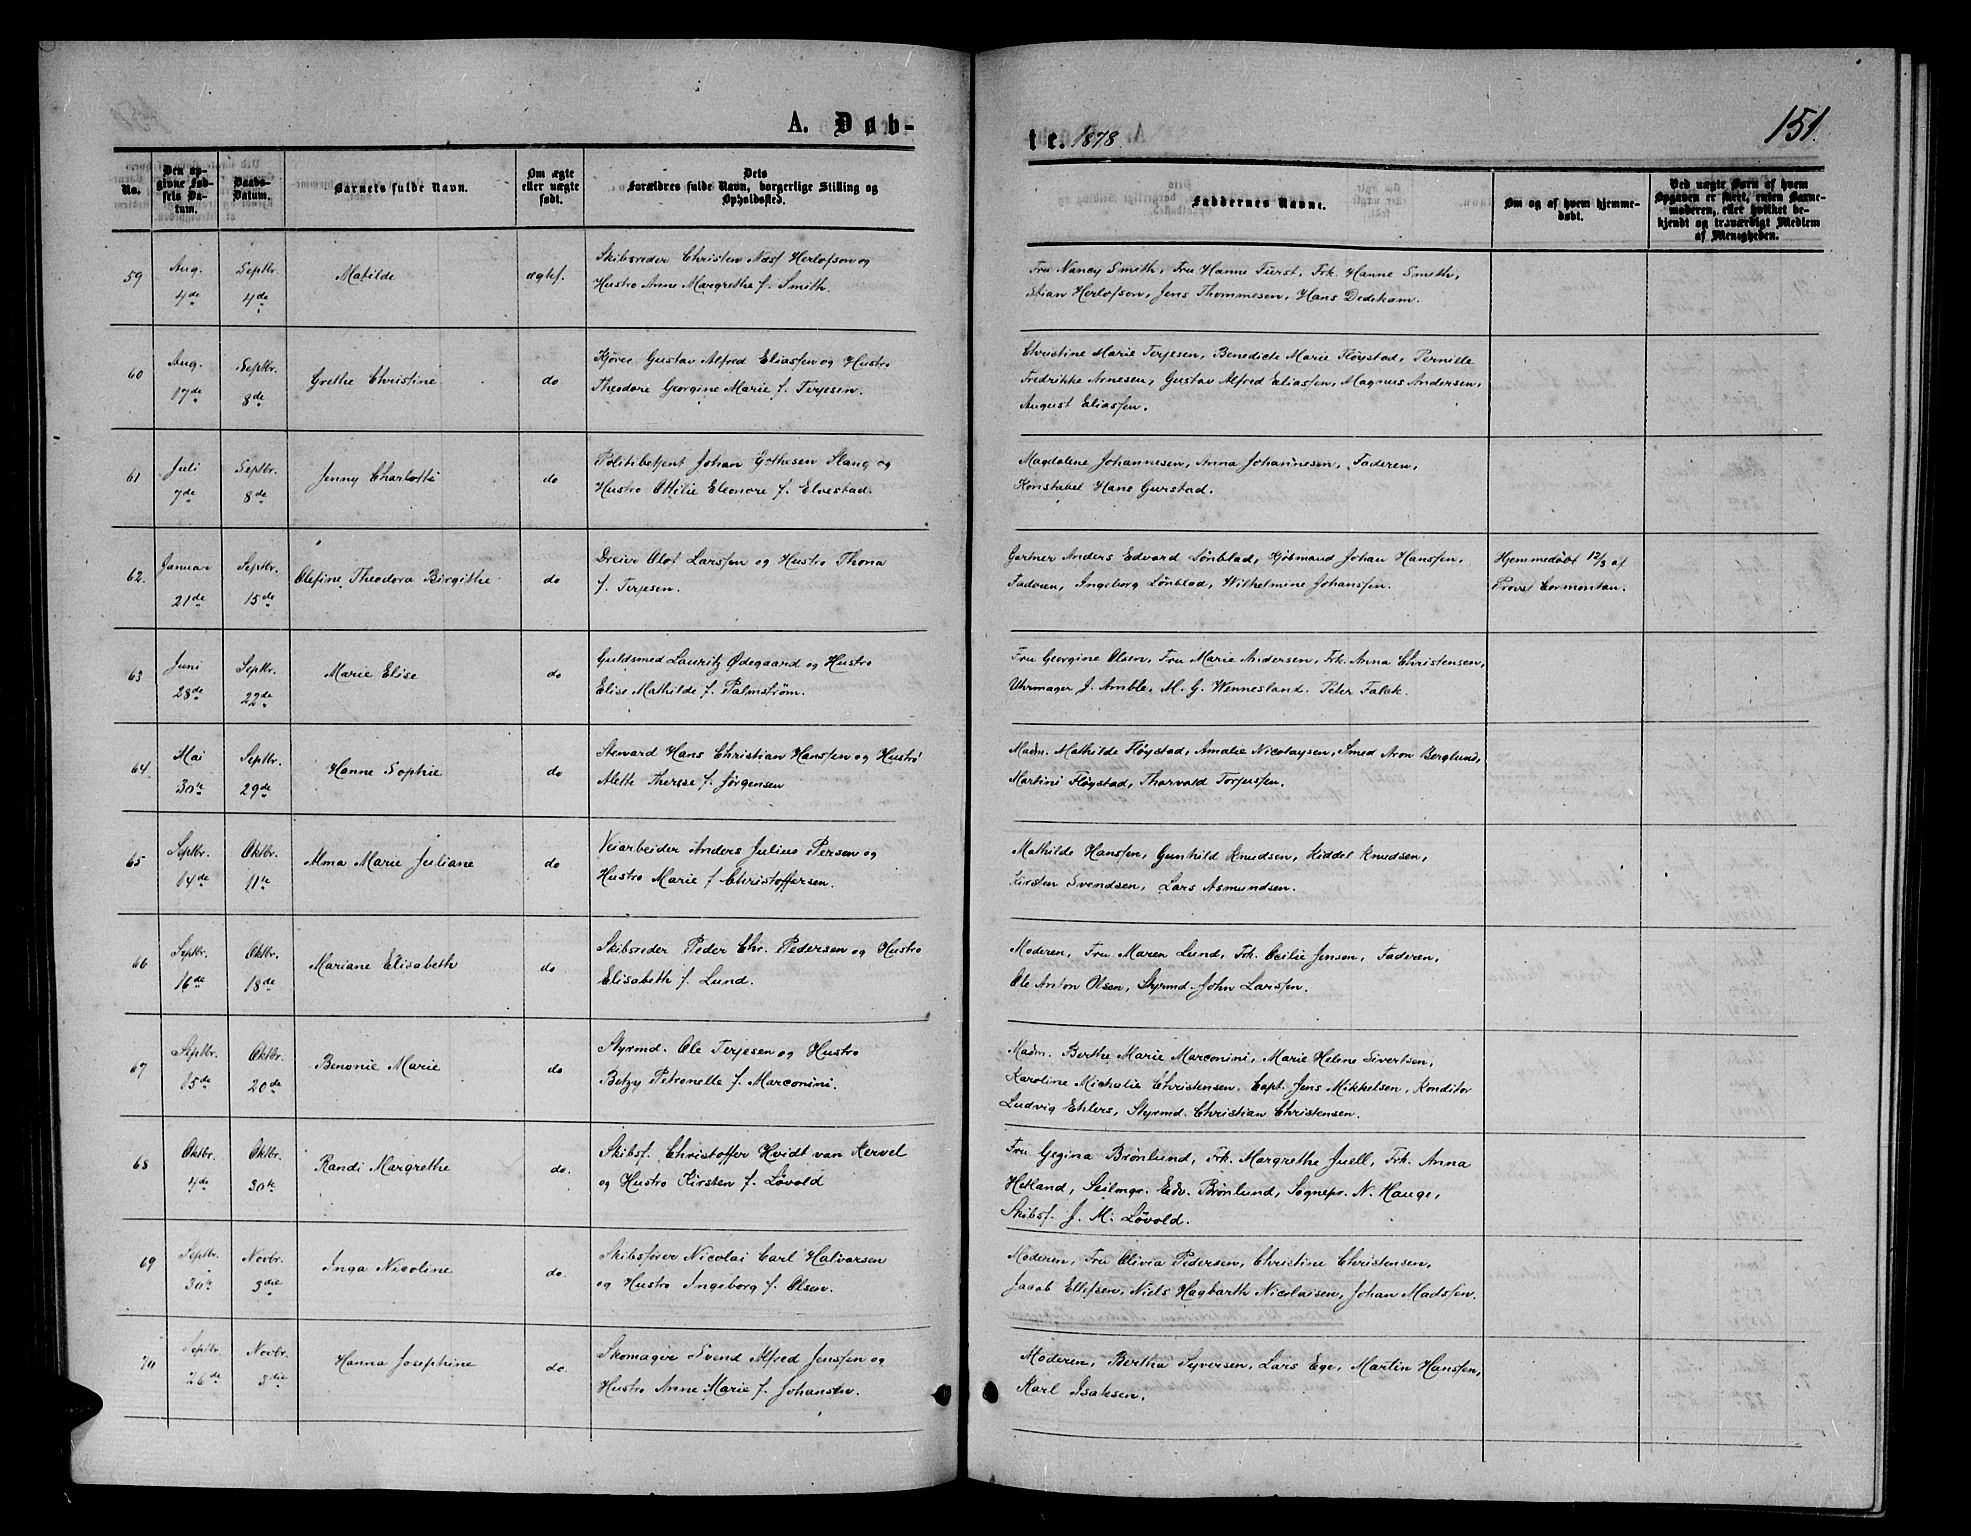 A. Døb-
te. 1878.
151.
No.
Den op-
givne Fød-
sels Da-
tum.
Daabs-
Datum.
Barnets fulde Navn.
Om ægte
eller uægte
født.
Dets
Forældres fulde Navn, borgerlige Stilling og
Opholdssted.
Faddernes Navne.
Om og af hvem hjemme-
døbt.
Ved uægte Børn af hvem
Opgaven er skeet, enten Barne-
moderen, eller hvilket be-
kjendt og troværdigt Medlem
af Menigheden.
59
Aug.
4de
Septbr.
4de
Matilde
ægtef.
Skibsreder Christen Næsf Herlofson og
Hustro Anne Margrethe f. Smith.
Fru Nancy Smith, Fru Hanne Fürst, Frk. Hanne Smith,
Stian Herlofsen, Jens Thommesen, Hans Dedekam.
60
Aug.
17de
Septbr.
8de
Grethe Christine
do
Kjører Gustav Alfred Eliassen og Hustro
Theodore Georgine Marie f. Terjesen.
Christine Marie Terjesen, Benedicte Marie Fløystad, Pernille
Fredrikke Arnesen, Gustav Alfred Eliassen, Magnus Andersen,
August Eliassen.
61
Juli
7de
Septbr.
8de
Jenny Charlotte
do
Politibetjent Johan Gothesen Stang og
Hustro Ottilie Eleonore f. Elvestad.
Magdalene Johannesen, Anna Johannesen, Faderen,
Konstabel Hans Gurstad.
62.
Januar
21de
Septbr.
15de
Olefine Theodora Birgithe
do
Dreier Olof Larssen og Hustro Thona
f. Terjesen.
Gartner Anders Edvard Lönblad, Kjøbmand Johan Hanssen,
Faderen, Ingeborg Lönblad, Wilhelmine Johanssen.
Hjemmedøbt 12/3 af
Provst Cormontan.
63
Juni
28de
Septbr.
22de
Marie Elise
do
Guldsmed Lauritz Ødegaard og Hustro
Elise Mathilde f. Palmstrøm.
Fru Georgine Olsen, Fru Marie Andersen, Frk. Anna Christensen,
Uhrmager J. Amble, M. G. Wennesland. Peter Falck.
64
Mai
30te
Septbr.
29de
Hanne Sophie
do
Steward Hans Christian Hanssen og Hustro
Alette Therese f. Jørgensen
Madm. Mathilde Fløystad, Amalie Nicolaysen, Smed Aron Berglund,
Martini Fløystad, Tharvald Torjussen.
65
Septbr.
14de
Oktbr.
11te
Alma Marie Juliane
do
Veiarbeider Anders Julius Persen og
Hustro Marie f Christoffersen.
Mathilde Hanssen, Gunhild Knudsen, Kiddel Knudsen,
Kirsten Svendsen, Lars Asmundsen.
66
Septbr.
16de
Oktbr.
18de
Mariane Elisabeth
do
Skibsreder Peder Chr. Pedersen og Hustro
Elisabeth f. Lund.
Moderen, Fru Maren Lund, Frk. Cecilie Jensen, Faderen,
Ole Anton Olsen, Styrmd. John Larssen.
67
Septbr.
15de
Oktbr.
20de
Benonie Marie
do
Styrmd. Ole Terjesen og Hustro
Betzy Petronelle f. Marconini.
Madm. Berthe Marie Marconini, Marie Helene Sivertsen,
Karoline Michalie Christensen, Capt. Jens Mikkelsen, Konditor
Ludvig Ehlers, Styrmd. Christian Christensen.
68
Oktbr.
4de
Oktbr.
30te
Randi Margrethe
do.
Skibsf. Christoffer Hvidt van Kervel
og Hustro Kirsten f. Løvold
Fru Gegina Brønlund, Frk. Margrethe Juell, Frk. Anna
Hetland, Seilmgr. Edv. Brønlund, Sognepr. N. Hauge,
Skibsf. J. M. Løvold.
69
Septbr.
30te
Novbr.
3die
Inga Nicoline
do.
Skibsfører Nicolai Carl Halvorsen
og Hustro Ingeborg f. Olsen.
Moderen, Fru Olivia Pedersen, Christine Christensen,
Jacob Ellefsen, Niels Hagbarth Nicolaisen, Johan Madssen.
70
Septbr.
26de
Novbr.
3die
Hanna Josephine
do.
Skomager Svend Alfred Jenssen og
Hustro Anne Marie f. Johansen.
Moderen, Bertha Syversen, Lars Ege, Martin Hanssen,
Karl Isaksen.